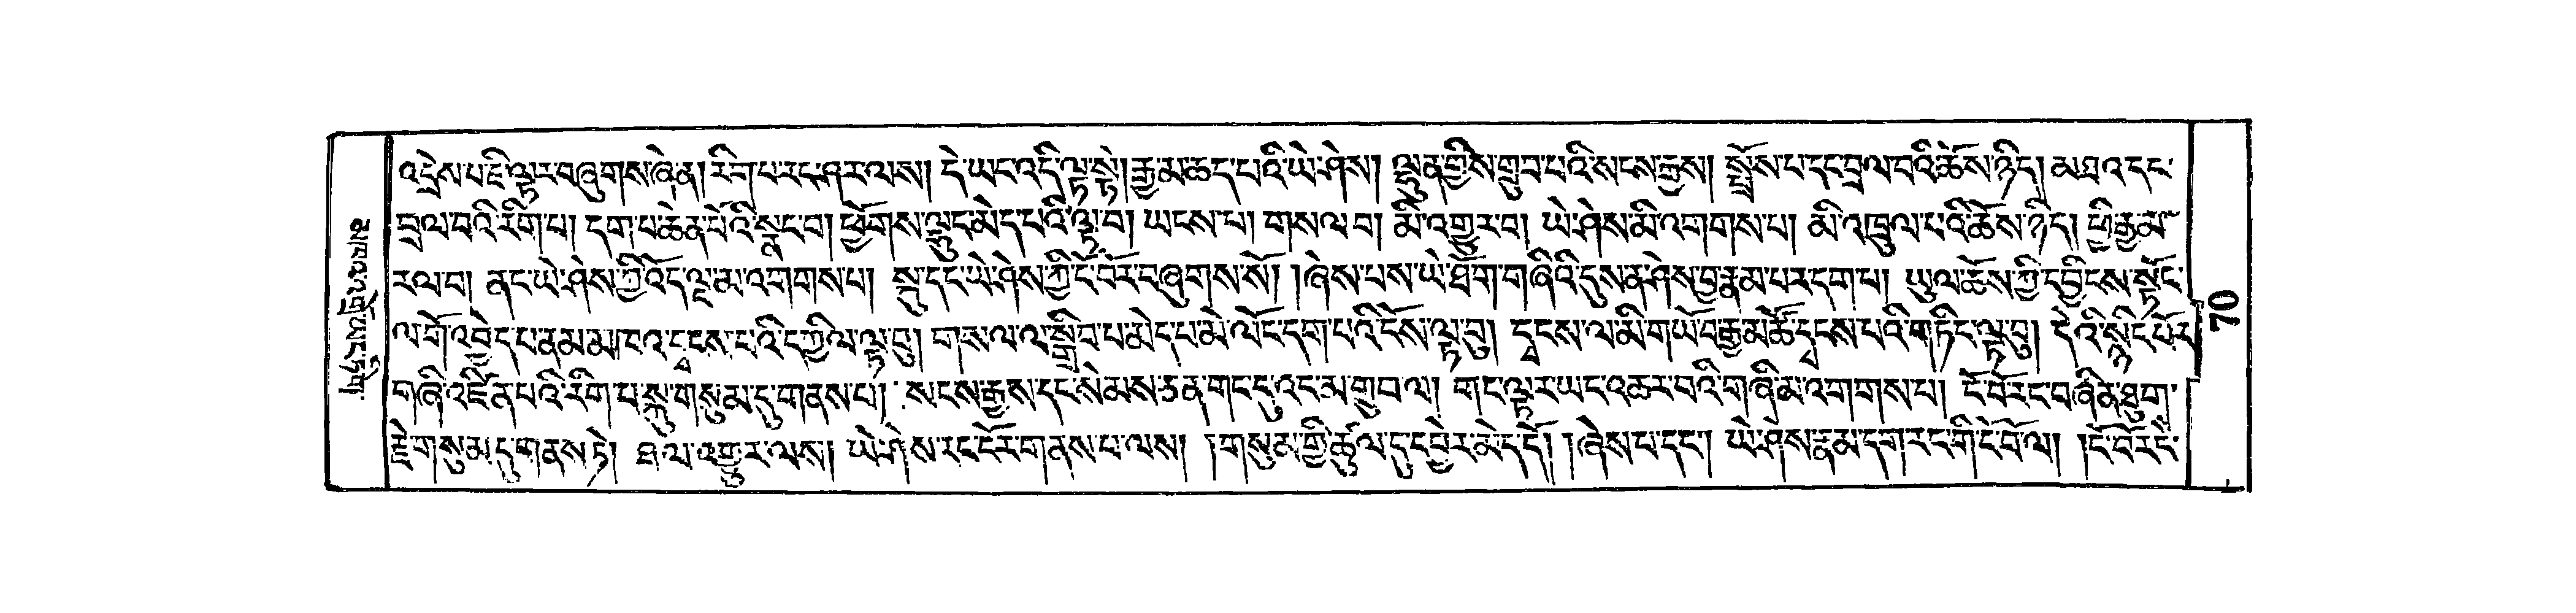 འདྲེས་པ་ཇི་ལྟར་བཞུགས་ཞེ་ན། རིག་པ་རང་ཤར་ལས། དེ་ཡང་འདི་ལྟ་སྟེ། རྒྱ་མ་ཆད་པའི་ཡེ་ཤེས། ལྷུན་གྱིས་གྲུབ་པའི་སངས་རྒྱས། སྤྲོས་པ་དང་བྲལ་བའི་ཆོས་ཉིད། མཐའ་དང་
བྲལ་བའི་རིག་པ། དག་པ་ཆེན་པོའི་སྣང་བ། ཕྱོགས་ལྷུང་མེད་པའི་ལྟ་བ། ཡངས་པ། གསལ་བ། མི་འགྱུར་བ། ཡེ་ཤེས་མི་འགགས་པ། མི་འཁྲུལ་པའི་ཆོས་ཉིད། ཕྱི་རྒྱ་མ་
རལ་བ། ནང་ཡེ་ཤེས་ཀྱི་འོད་ལྔ་མ་འགགས་པ། སྐུ་དང་ཡེ་ཤེས་ཀྱི་ངོ་བོར་བཞུགས་སོ། །ཞེས་པས་ཡེ་ཐོག་གཞིའི་དུས་ན་ཤེས་བྱ་རྣམ་པར་དག་པ། ཡུལ་ཆོས་ཀྱི་དབྱིངས་སྟོང་
ལ་གོ་འབྱེད་པ་ནམ་མཁའ་དྭངས་པའི་དཀྱིལ་ལྟ་བུ། གསལ་ལ་སྒྲིབ་པ་མེད་པ་མེ་ལོང་དག་པའི་ངོས་ལྟ་བུ། དྭངས་ལ་མི་གཡོ་བ་རྒྱ་མཚོ་དྭངས་པའི་གཏིང་ལྟ་བུ། དེའི་སྙིང་པོར
གཞི་འཛིན་པའི་རིག་པ་སྐུ་གསུམ་དུ་གནས་པ། སངས་རྒྱས་དང་སེམས་ཅན་གང་དུའང་མ་གྲུབ་ལ། གང་ལྟར་ཡང་འཆར་བའི་གཞི་མ་འགགས་པ། ངོ་བོ་རང་བཞིན་ཐུག་
རྗེ་གསུམ་དུ་གནས་ཏེ། ཐལ་འགྱུར་ལས། ཡེ་ཤེས་རང་ངོར་གནས་པ་ལས། །གསུམ་གྱི་ཚུལ་དུ་དབྱེར་མེད་དོ། །ཞེས་པ་དང་། ཡེ་ཤེས་རྣམ་དག་རང་གི་ངོ་བོ་ལ། །ངོ་བོ་རང་